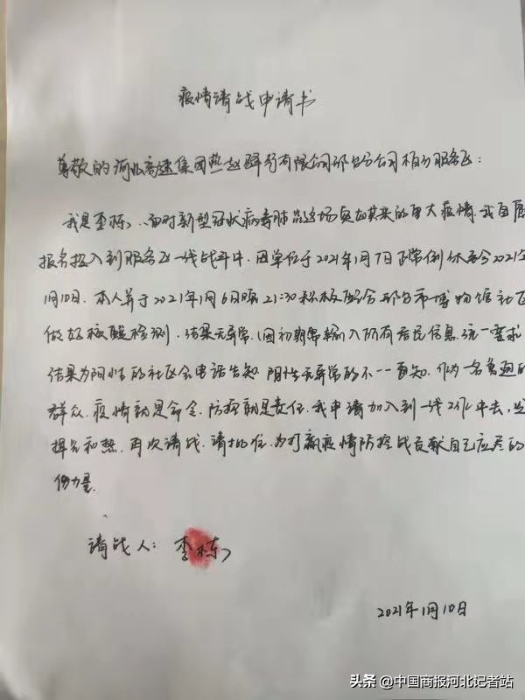 疫情请战申请书
尊敬的河北高速集团燕赵驿行有限公司邢台分公司柏乡服务区：
我是李栋，面对新型冠状病毒肺炎这场突如其来的重大疫情，我自愿
报名投入到服务区一线战斗中，因单位于2021年1月7日正常倒休至今2021年
1月10日。本人并于2021年1月6日晚21:30积极配合邢台市博物馆社区
做好核酸检测，结果无异常，（因初期需输入所有居民信息，统一要求
结果为阳性的社区会电话告知，阴性无异常的不一一再知，作为一名普通的
群众，疫情就是命令，防控就是责任，我申请加入到一线工作中去，
再次请战，请批准，为打赢疫情防控战贡献自己应尽的
份力量。
请战人：李栋
2021年1月10日
头条 @中国商报河北记者站